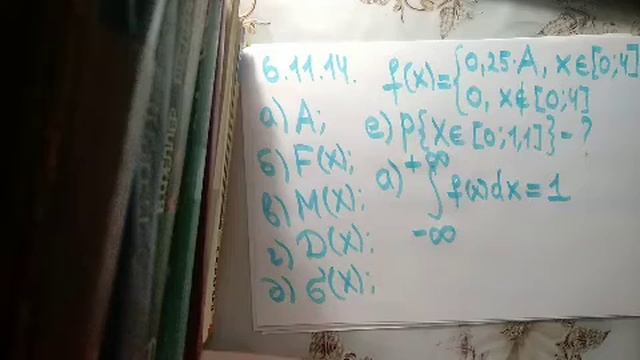 6.11.14. f(x)={0,25·A, x∈[0;4]
0, x∉[0;4]
а) A; е) P{X∈[0;1,1]}-?
б) F(x);
а) ∫ f(x)dx=1
+∞
-∞
в) M(x);
г) D(x);
д) б(x);